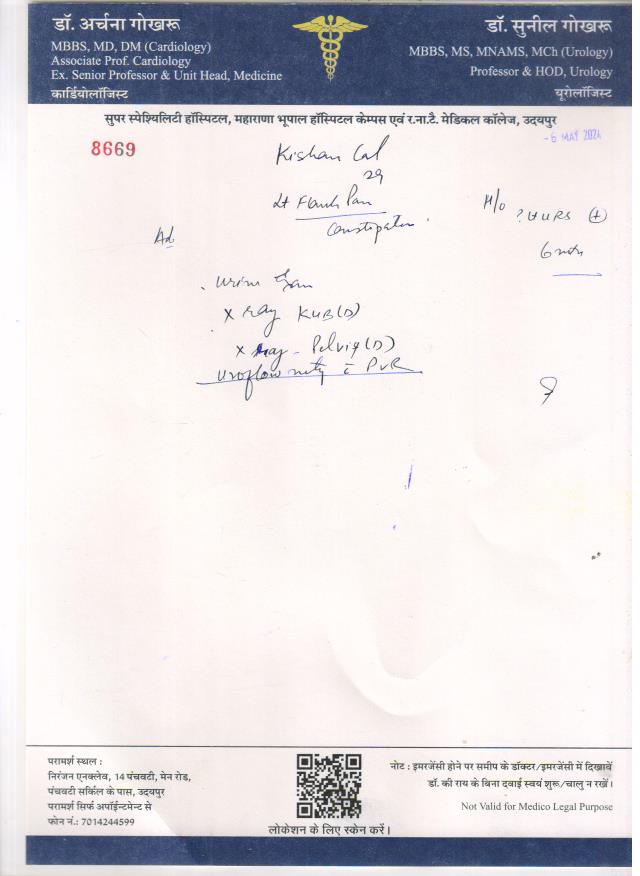 डॉ. अर्चना गोखरू
MBBS, MD, DM (Cardiology)
Associate Prof. Cardiology
Ex. Senior Professor & Unit Head, Medicine
कार्डियोलॉजिस्ट
डॉ. सुनील गोखरू
MBBS, MS, MNAMS, MCh (Urology)
Professor & HOD, Urology
यूरोलॉजिस्ट
सुपर स्पेश्यिलिटी हॉस्पिटल, महाराणा भूपाल हॉस्पिटल केम्पस एवं र.ना.टै. मेडिकल कॉलेज, उदयपुर
8669
- 6 MAY 2024
Kishan Lal
29
Lt Flank Pain
Constipation
H/o
? HURS (+)
Ad
Urine Exam
X ray KUB (D)
X ray - Pelvis (D)
Uroflowmetry c̄ PVR
परामर्श स्थल :
निरंजन एनक्लेव, 14 पंचवटी, मेन रोड,
पंचवटी सर्किल के पास, उदयपुर
परामर्श सिर्फ अपॉईन्टमेन्ट से
फोन नं.: 7014244599
लोकेशन के लिए स्केन करें।
नोट : इमरजेंसी होने पर समीप के डॉक्टर/इमरजेंसी में दिखावें
डॉ. की राय के बिना दवाई स्वयं शुरू/चालु न रखें।
Not Valid for Medico Legal Purpose